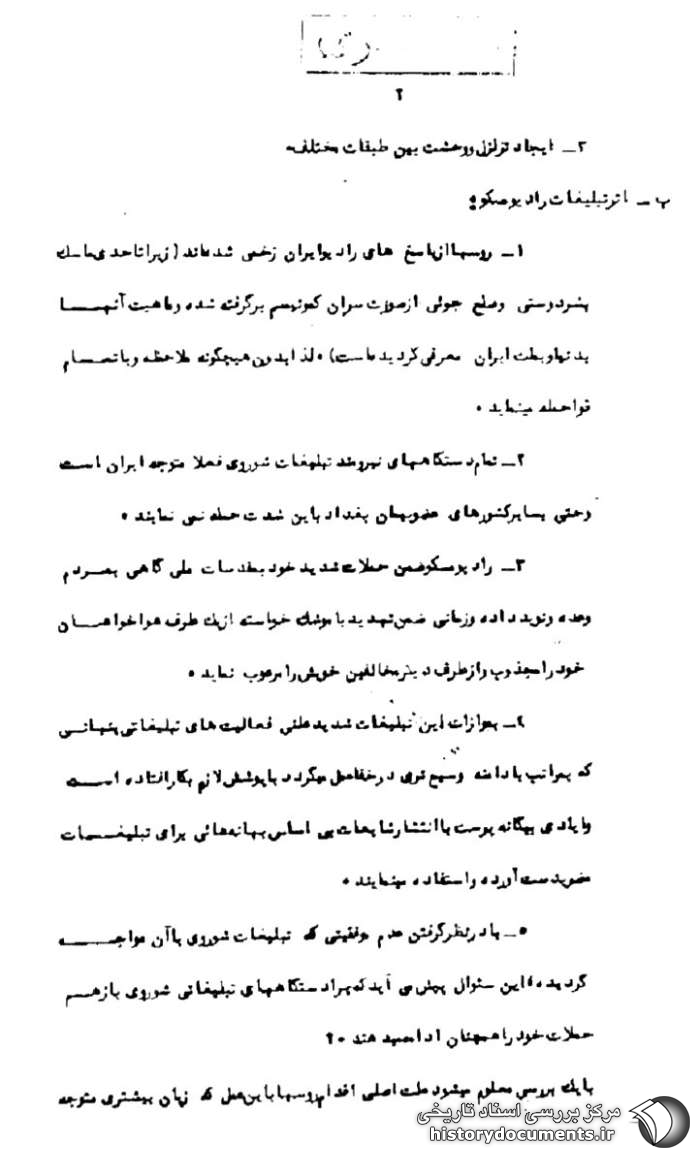 ۲
۳ـ ایجاد تزلزل ووحشت بین طبقات مختلفه
ب ـ اثرتبلیغات رادیومسکو:
۱ـ روسهاازپاسخ های رادیوایران زخمی شده‌اند (زیراتاحدی ماسک
بشردوستی وصلح جوئی ازصورت سران کمونیسم برگرفته شده وماهیت آنهـــا
بدنیاوبملت ایران معرفی گردیده‌است) ۰ لذا بدون هیچگونه ملاحظه وباتمـــام
قواحمله مینماید ۰
۲ـ تمام دستگاههای نیرومند تبلیغات شوروی فعلا متوجه ایران اســت
وحتی بسایرکشورهای عضوپیمان بغداد باین شدت حمله نمی نمایند ۰
۳ـ رادیومسکوضمن حملات شدید خود بمقدسات ملی گاهی بمــردم
وعده ونوید داده وزمانی ضمن تهدید باموشک خواسته ازیک طرف هواخواهـــان
خودرامجذوب وازطرف دیگرمخالفین خویش رامرعوب نماید ۰
۴ـ بموازات این تبلیغات شدید علنی فعالیت های تبلیغاتی پنهانــی
که بمراتب بادامنه وسیع تری درخفاعمل میگردد باپوشش لازم بکارافتاده اســت
وایادی بیگانه پرست باانتشارشایعات بی اساس بهانه‌هائی برای تبلیغـــات
مضربدست آورده واستفاده مینمایند ۰
۵ـ بادرنظرگرفتن عدم موفقیتی که تبلیغات شوروی باآن مواجـــه
گردیده،این سئوال پیش می آید که چرادستگاههای تبلیغاتی شوروی بازهــم
حملات خودراهمچنان ادامه‌میدهند ۰؟
بایک بررسی معلوم میشود علت اصلی اقدام روسهاباین عمل که زیان بیشتری متوجه
مرکز بررسی اسناد تاریخی
historydocuments.ir